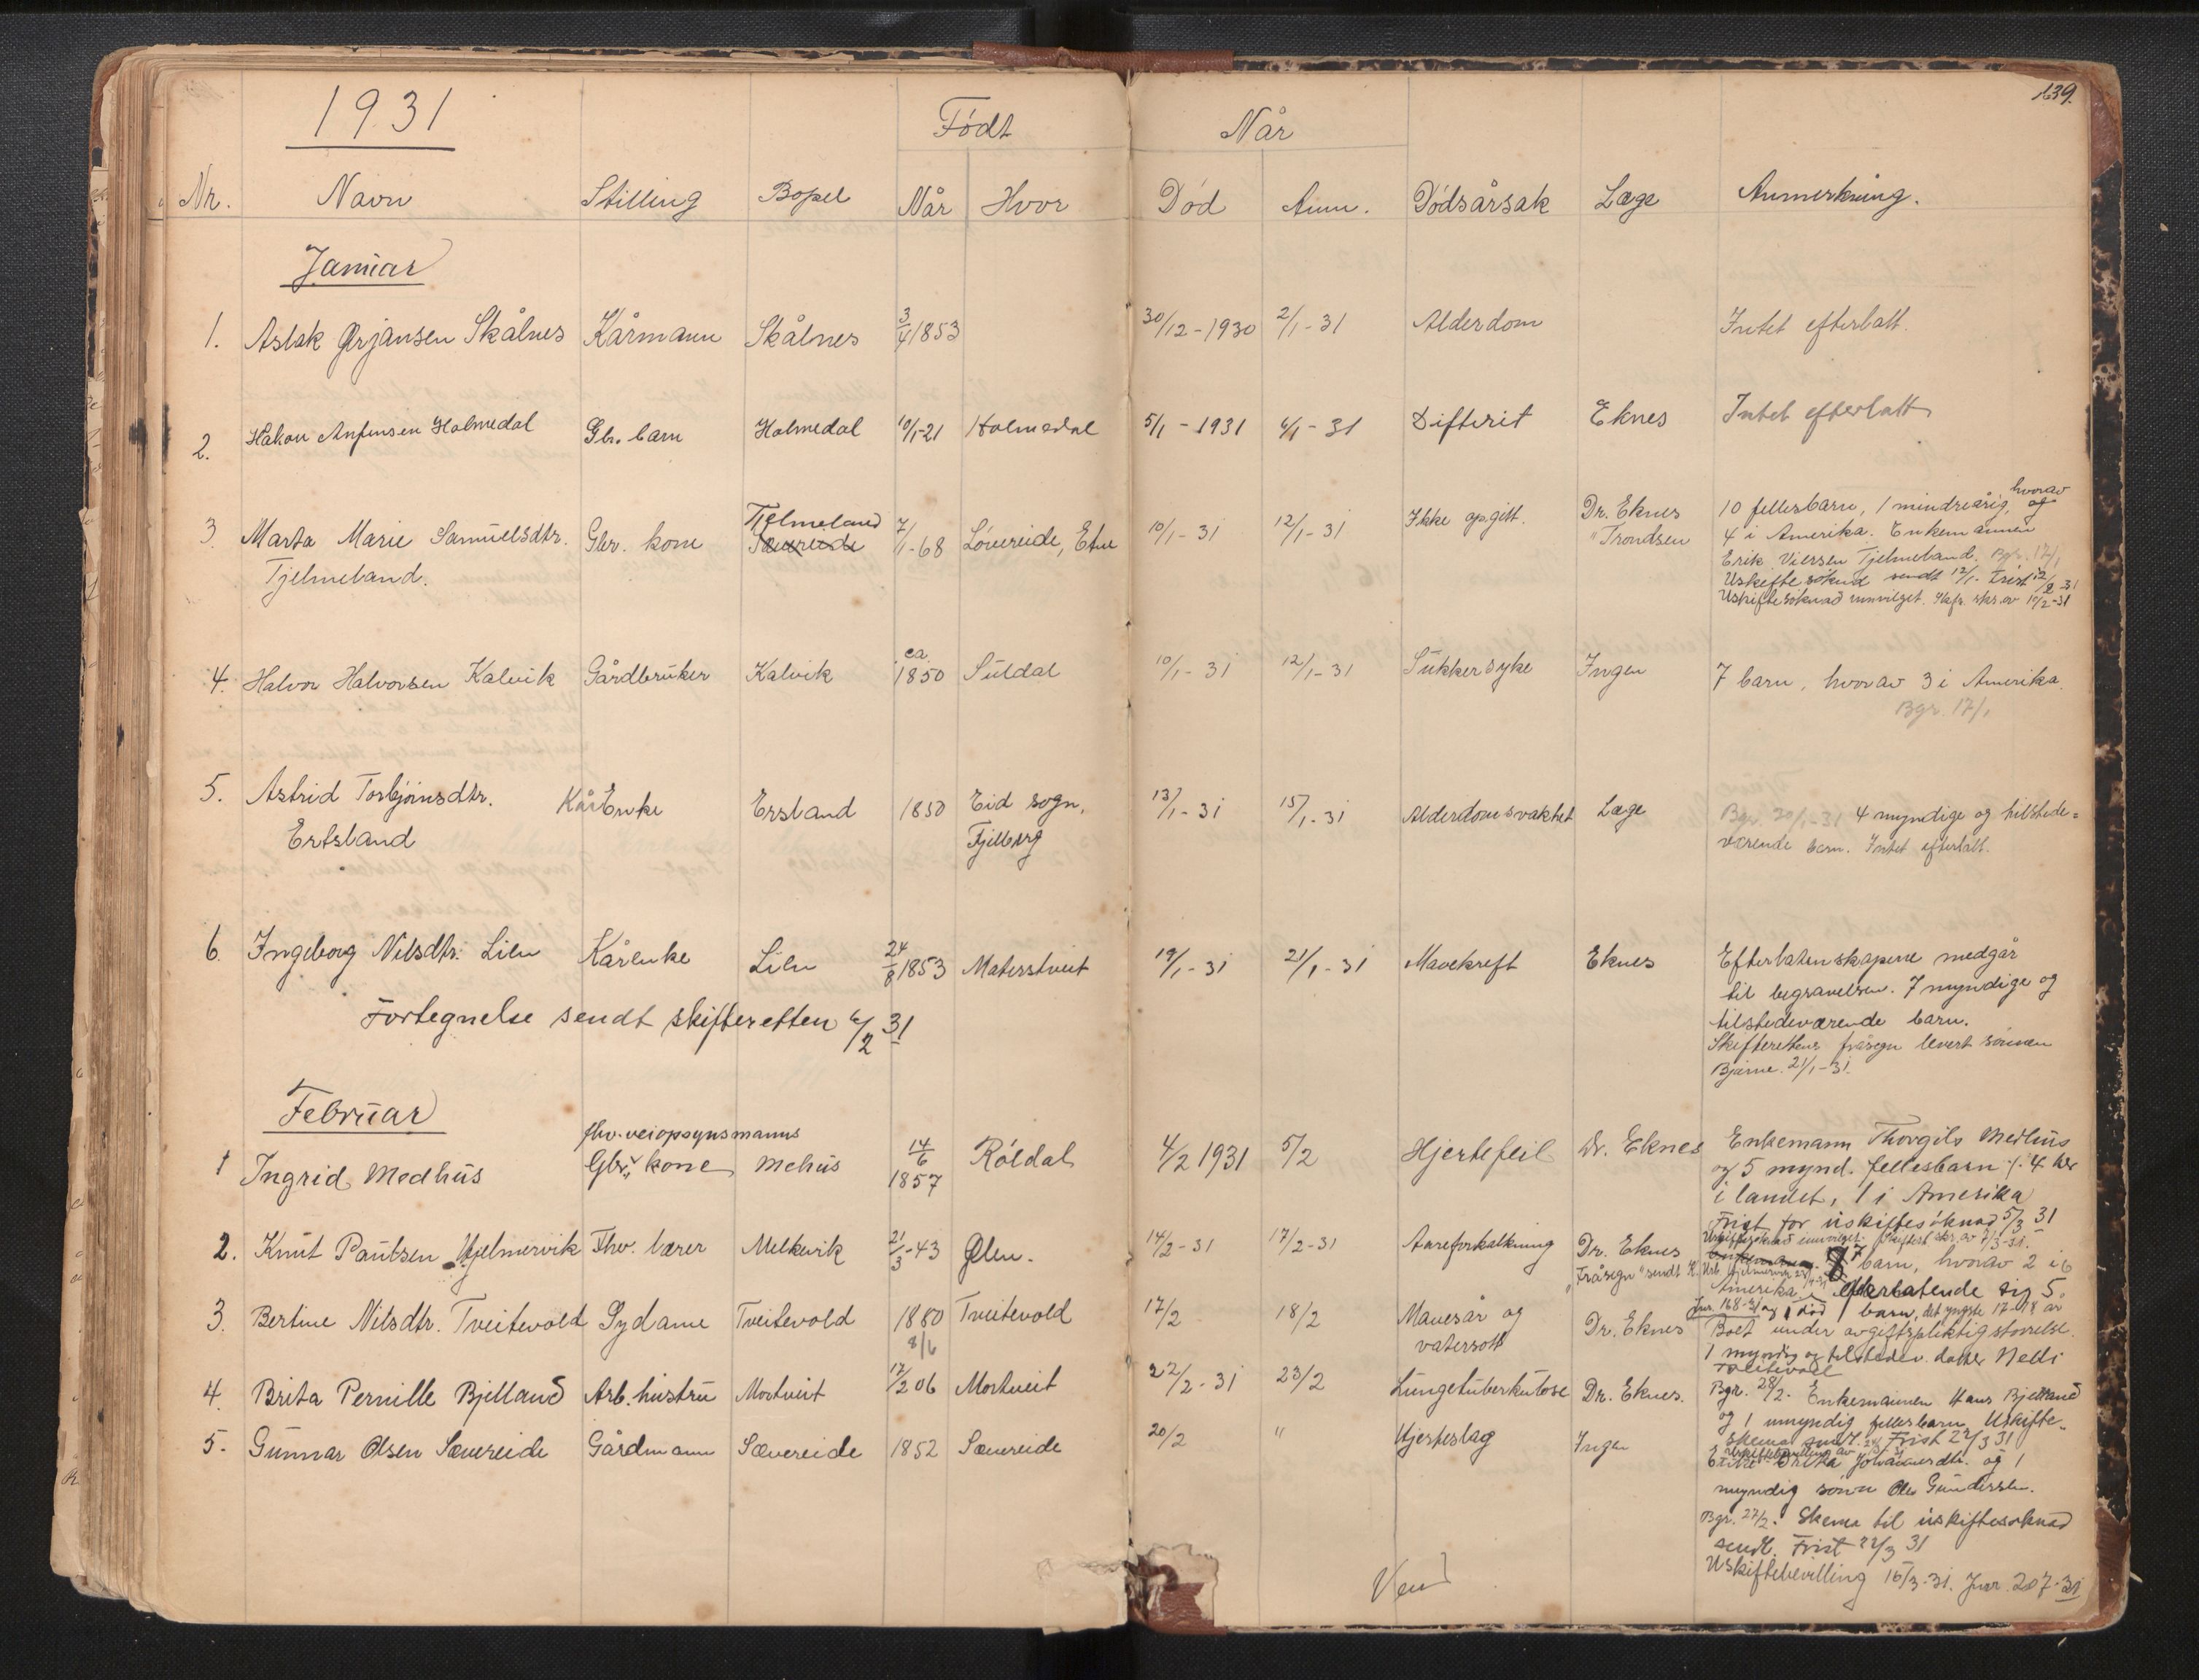 139.
1931
Født
Når
Nr. Navn Stilling Bopel Når Hvor Død Anm. Dødsårsak Læge Anmerkning.
Januar
1. Aslak Ørjansen Skålnes Kårmann Skålnes 3/4 1853 30/12-1930 2/1-31 Alderdom Intet efterlatt.
2. Håkon Anfinsen Holmedal Gbr. barn Holmedal 10/1-21 Holmedal 5/1-1931 6/1-31 Difterit Eknes Intet efterlatt
3. Marta Marie Samuelsdtr. Gbr. kone Tjelmeland Sævereide 7/1-68 Løvereide, Etne 10/1-31 12/1-31 Ikke opgitt. Dr. Eknes 10 fellesbarn, 1 mindreårig, hvorav og
Tjelmeland. " Trondsen 4 i Amerika. Enkemannen
Erik Viersen Tjelmeland. Bgr. 17/1
Uskiftesøknad sendt 12/1. Frist 12/2-31
Uskiftesøknad innvilget. Skfr. skr. av 10/2-31
4. Halvor Halvorsen Kalvik Gårdbruker Kalvik ca 1850 Suldal 10/1-31 12/1-31 Sukkersyke Ingen 7 barn, hvorav 3 i Amerika.
Bgr. 17/1
5. Astrid Torbjørnsdtr. Kårenke Ersland 1850 Eid sogn, 13/1-31 15/1-31 Alderdomsvakhet Læge Bgr. 20/1-31 4 myndige og tilstede-
Ertsland Fjelberg værende barn. Intet efterlatt.
6. Ingeborg Nilsdtr. Lien Kårenke Lien 24/8 1853 Materstveit 19/1-31 21/1-31 Mavekreft Eknes Efterlatenskapene medgår
til begravelsen. 7 myndige og
Fortegnelse sendt skifteretten 6/2 31 tilstedeværende barn.
Skifterettens fråsegn levert sønnen
Bjarne. 21/1-31.
Februar
fhv. veiopsynsmanns
1 Ingrid Medhus Gbr. kone Mehus 14/6 1857 Røldal 4/2 1931 5/2 Hjertefeil Dr. Eknes Enkemann Thorgils Medhus
og 5 mynd. fellesbarn ./. 4 her
i landet, 1 i Amerika
Frist for uskiftesøknad 5/3 31
Uskiftesøknad innvilget. skifterett skr. av 7/3-31.
2. Knut Paulsen Hjelmervik Fhv. lærer Melkevik 21/3-43 Ølen. 14/2-31 17/2-31 Aareforkalkning Dr. Eknes 7 barn, hvorav 2 i
"Fråsegn" sendt Amerika, efterlatende sig 5
Jnr. 168-31 og 1 død barn, det yngste 17-18 år
3. Bertine Nilsdtr. Tveitevold Sydame Tveitevold 1880 8/6 Tveitevold 17/2 18/2 Mavesår og Dr. Eknes Boet under avgiftspliktig størrelse.
vatersott 1 myndig og tilstedev. datter Nelli
Tveitevold
4. Brita Pernille Bjelland Arb. hustru Mortveit 12/2 06 Mortveit 22/2-31 23/2 Lungetuberkulose Dr. Eknes. Bgr. 28/2. Enkemannen Hans Bjelland
og 1 umyndig fellesbarn. Uskifte-
skema sendt. Frist 22/3 31
5. Gunnar Olsen Sævereide Gårdmann Sævereide 1852 Sævereide 20/2 " Hjerteslag Ingen Enke Brita Johannesdtr. og 1
myndig sønn Ole Gundersen.
Bgr. 27/2. Skema til uskiftesøknad
sendt. Frist 22/3 31
Uskiftebevilling 16/3-31. Jnr. 207-31
Vend